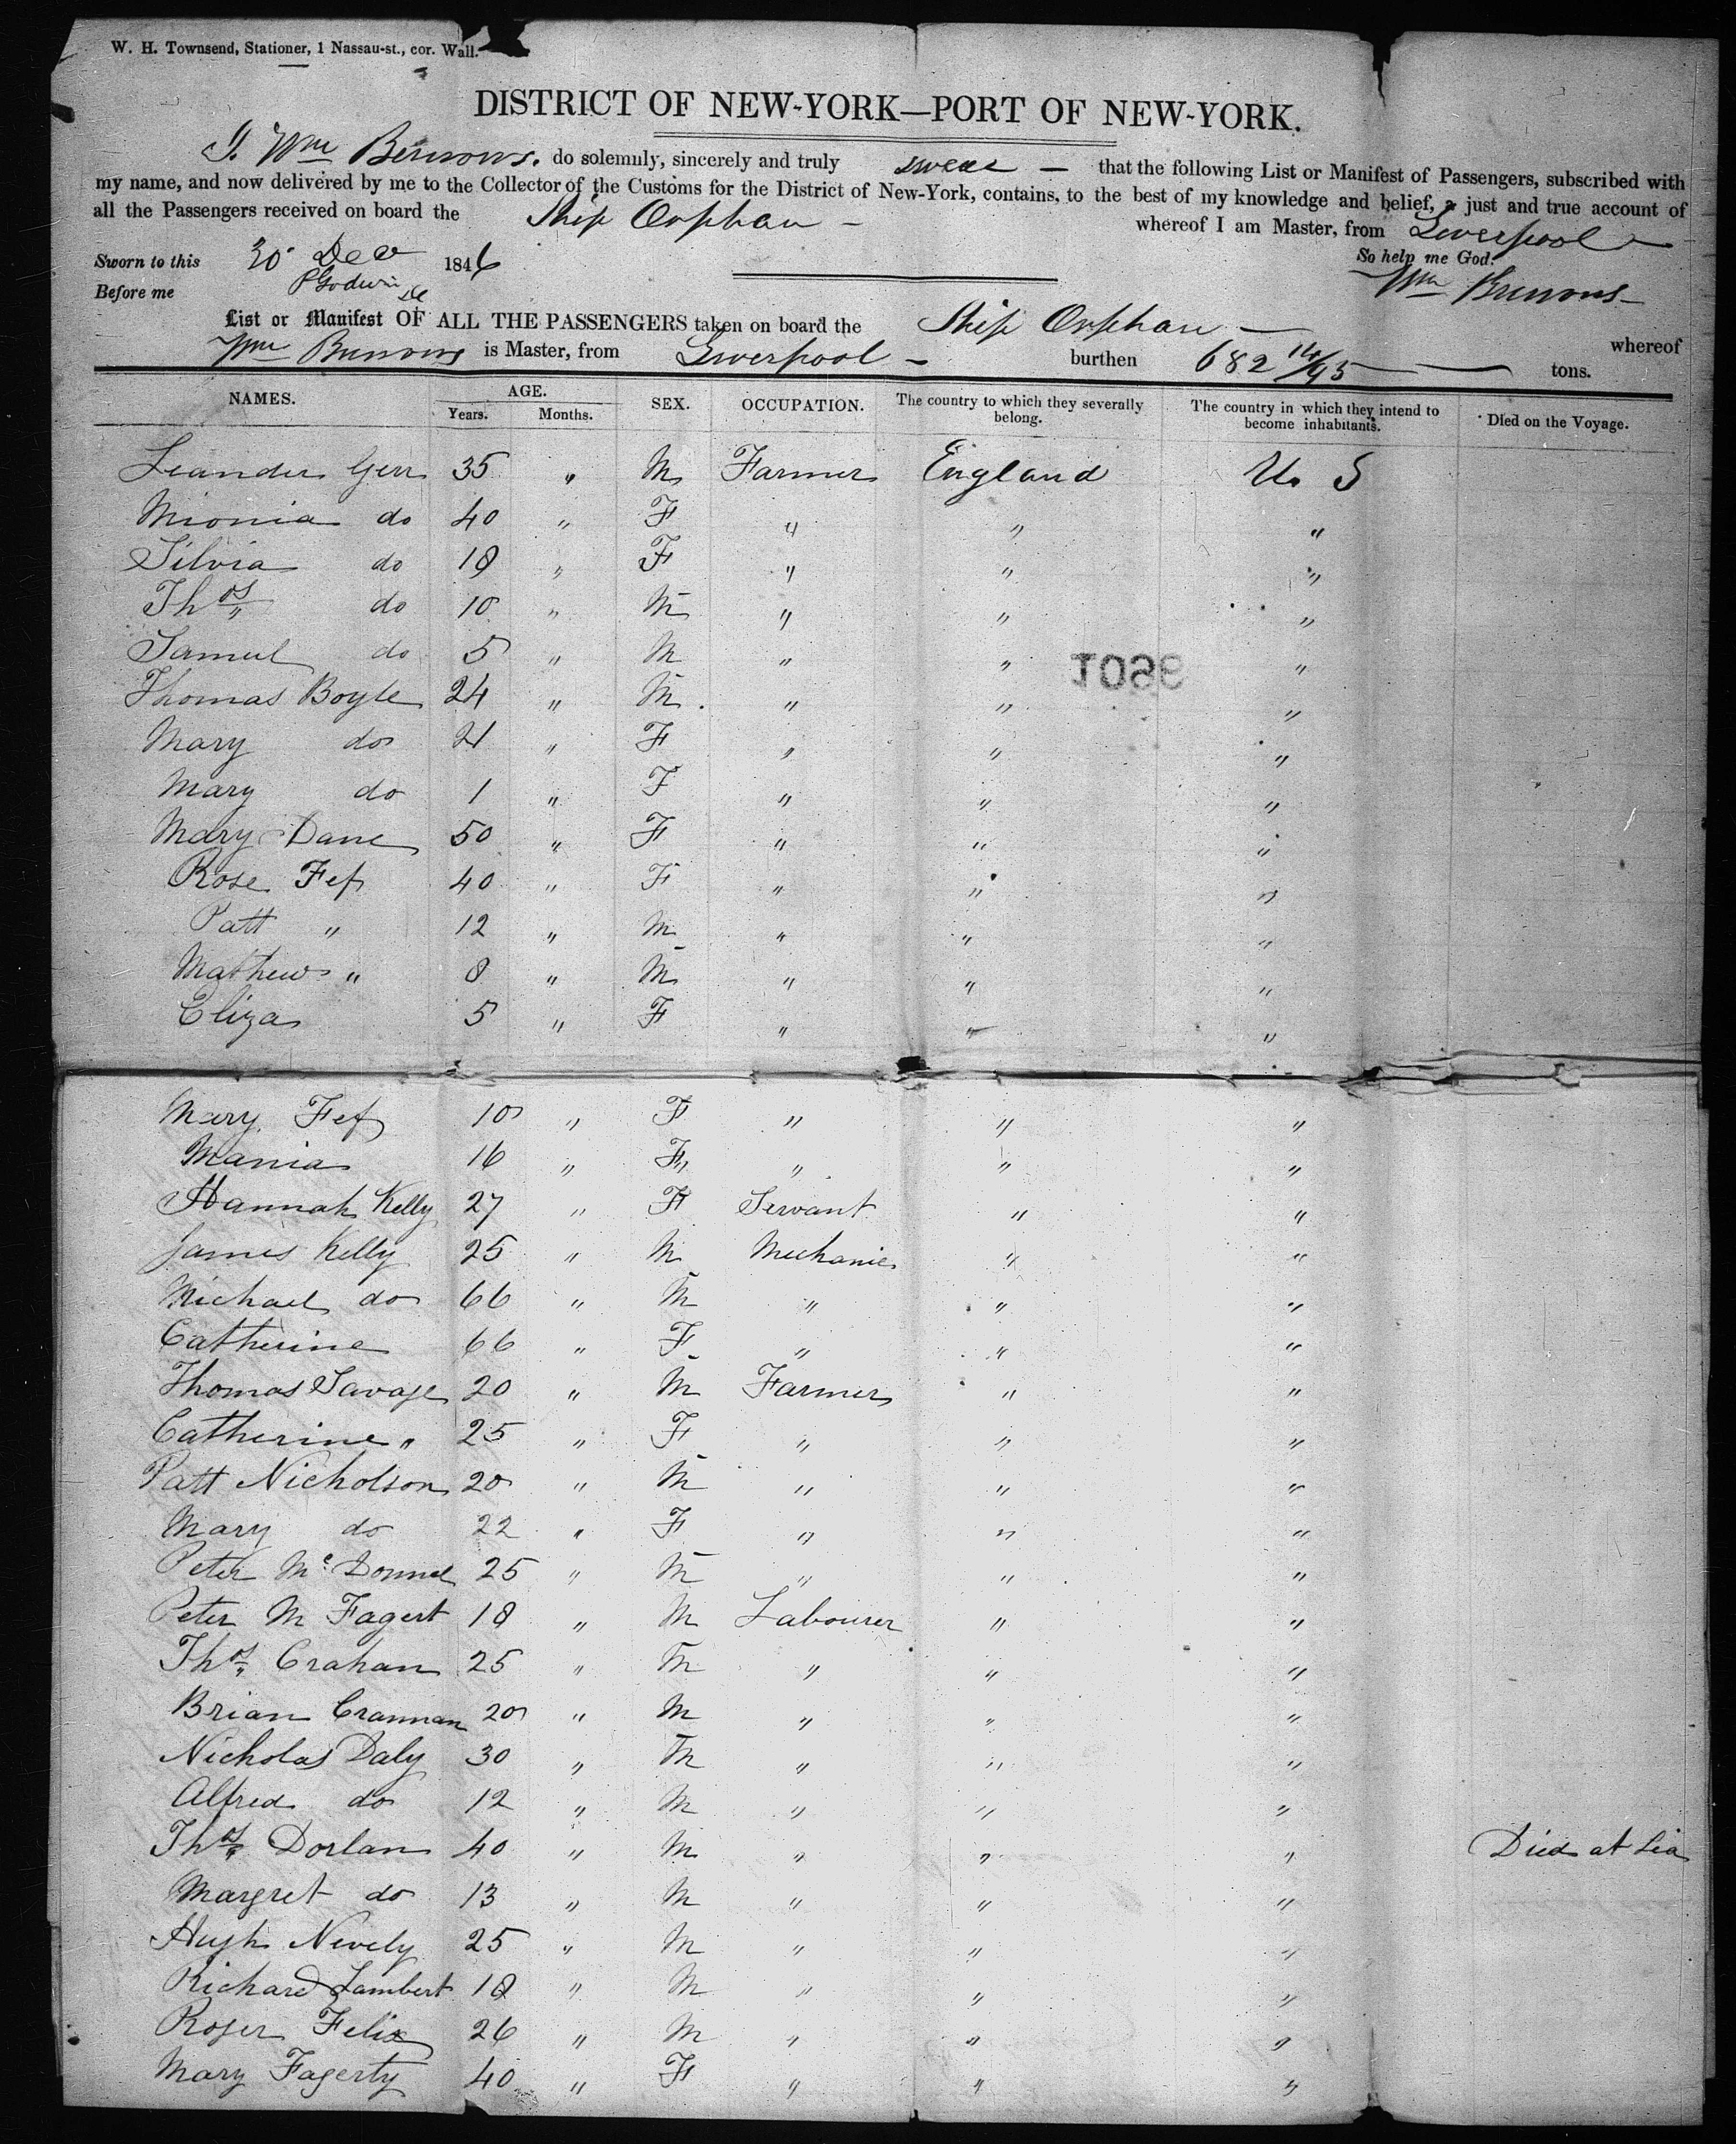 W. H. Townsend, Stationer, 1 Nassau-st., cor. Wall.
DISTRICT OF NEW-YORK—PORT OF NEW-YORK.
I, Wm Burrows, do solemnly, sincerely and truly swear — that the following List or Manifest of Passengers, subscribed with
my name, and now delivered by me to the Collector of the Customs for the District of New-York, contains, to the best of my knowledge and belief, a just and true account of
all the Passengers received on board the Ship Orphan — whereof I am Master, from Liverpool —
Sworn to this 30 Dec 1846 So help me God.
Before me P Godwin Wm Burrows —
List or Manifest OF ALL THE PASSENGERS taken on board the Ship Orphan — whereof
Wm Burrows is Master, from Liverpool — burthen 682 14/95 — tons.
NAMES. AGE. SEX. OCCUPATION. The country to which they severally belong. The country in which they intend to become inhabitants. Died on the Voyage.
Years. Months.
Leander Gerr 35 " M Farmer England U. S
Mionia do 40 " F " " "
Silvia do 18 " F " " "
Thos do 10 " M " " "
Samuel do 5 " M " " "
1056
Thomas Boyle 24 " M " " "
Mary do 21 " F " " "
Mary do 1 " F " " "
Mary Dane 50 " F " " "
Rose Fef 40 " F " " "
Patt " 12 " M " " "
Mathew " 8 " M " " "
Eliza 5 " F " " "
Mary Fef 10 " F " " "
Mania 16 " F " " "
Hannah Kelly 27 " F Servant " "
James Kelly 25 " M Mechanic " "
Michael do 66 " M " " "
Catherine 66 " F " " "
Thomas Savage 20 " M Farmer " "
Catherine " 25 " F " " "
Patt Nicholson 20 " M " " "
Mary do 22 " F " " "
Peter Mc Donnel 25 " M " " "
Peter M Fagert 18 " M Labourer " "
Thos Crahan 25 " M " " "
Brian Crannan 20 " M " " "
Nicholas Daly 30 " M " " "
Alfred do 12 " M " " "
Thos Dorlan 40 " M " " " Died at Sea
Margret do 13 " M " " "
Hugh Nevely 25 " M " " "
Richard Lambert 18 " M " " "
Roger Felix 26 " M " " "
Mary Fagerty 40 " F " " "